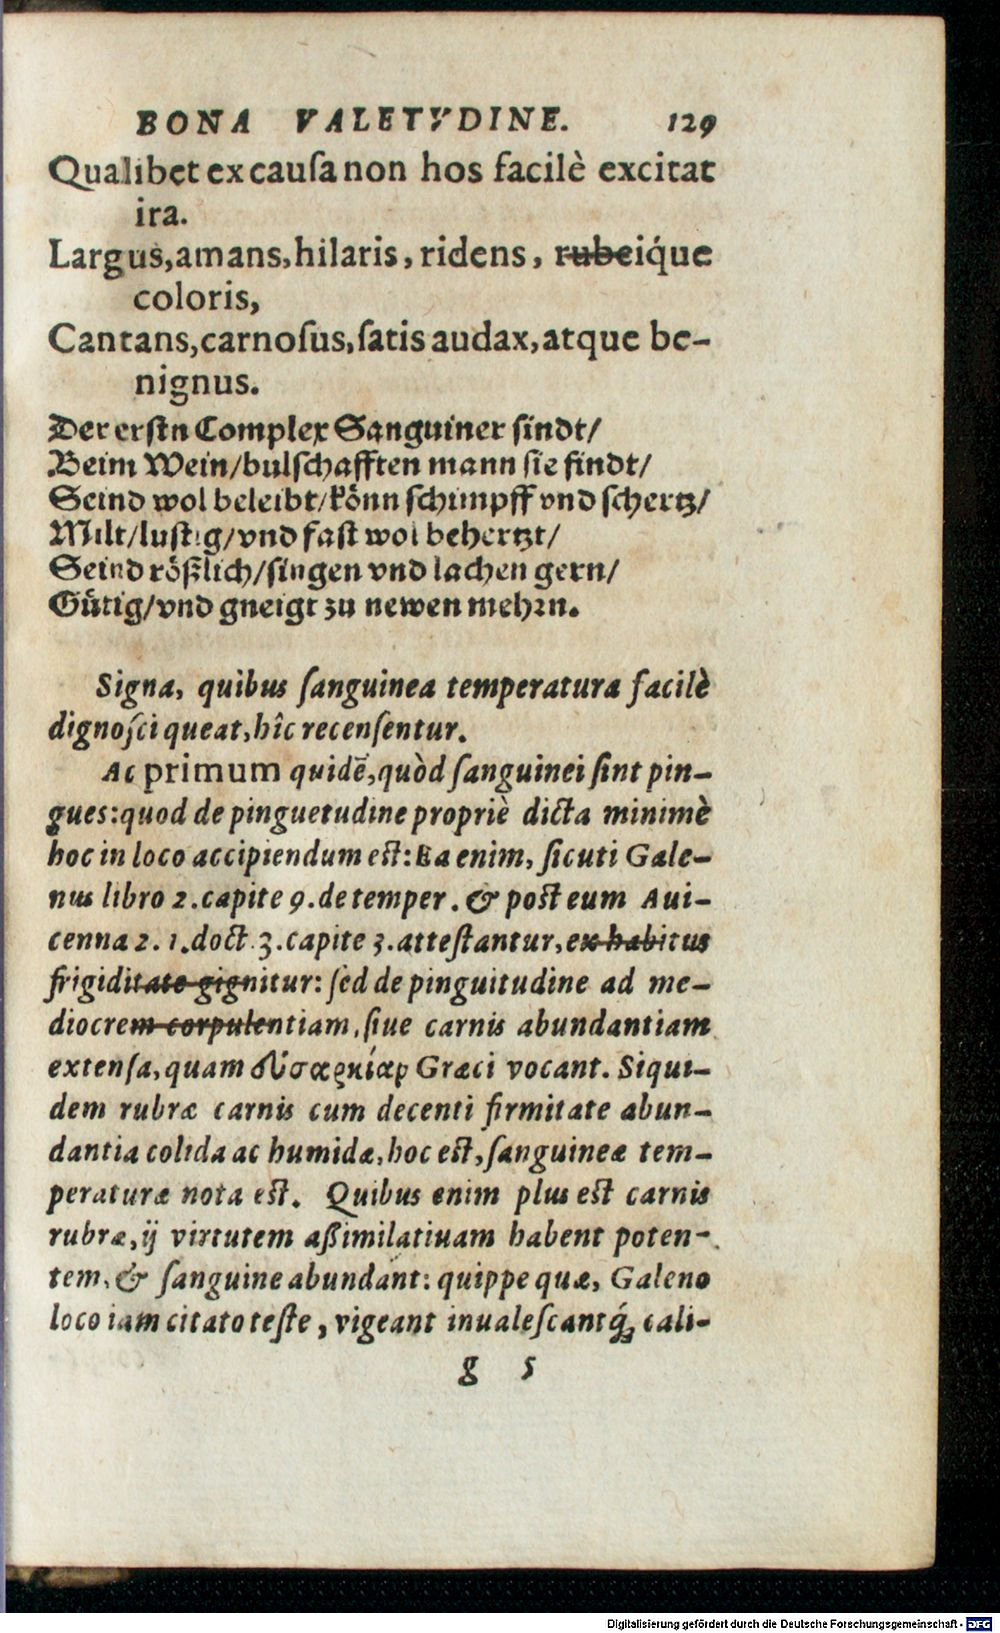 BONA VALETVDINE. 129
Qualibet ex causa non hos facilè excitat
ira.
Largus, amans, hilaris, ridens, rubeiq́ue
coloris,
Cantans, carnosus, satis audax, atque be-
nignus.
Der erstn Complex Sanguiner sindt/
Beim Wein/bulschafften mann sie findt/
Seind wol beleibt/könn schimpff vnd schertz/
Milt/lustig/vnd fast wol behertzt/
Seind rößlich/singen vnd lachen gern/
Gütig/vnd gneigt zu newen mehrn.
Signa, quibus sanguinea temperatura facilè
dignosci queat, hîc recensentur.
Ac primum quidē, quòd sanguinei sint pin-
gues: quod de pinguetudine propriè dicta minimè
hoc in loco accipiendum est: Ea enim, sicuti Gale-
nus libro 2. capite 9. de temper. & post eum Aui-
cenna 2. 1. doct. 3. capite 3. attestantur, ex habitus
frigiditate gignitur: sed de pinguitudine ad me-
diocrem corpulentiam, siue carnis abundantiam
extensa, quam ἐυσαρκίαρ Græci vocant. Siqui-
dem rubræ carnis cum decenti firmitate abun-
dantia calida ac humidæ, hoc est, sanguineæ tem-
peraturæ nota est. Quibus enim plus est carnis
rubræ, ij virtutem aßimilatiuam habent poten-
tem, & sanguine abundant: quippe quæ, Galeno
loco iam citato teste, vigeant inualescantq́; cali-
g 5
Digitalisierung gefördert durch die Deutsche Forschungsgemeinschaft - DFG